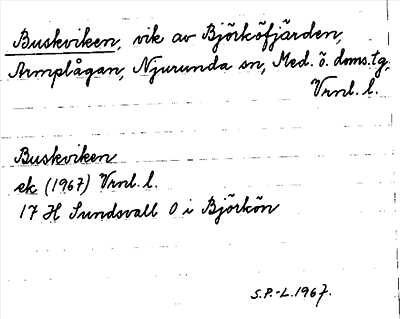 Buskviken, vik av Björköfjärden,
Armplågan, Njurunda sn, Med. ö. doms.tg,
Vrnl. l.
Buskviken
ek (1967) Vrnl. l.
17 H Sundsvall O i Björkön
S.P.-L. 1967.